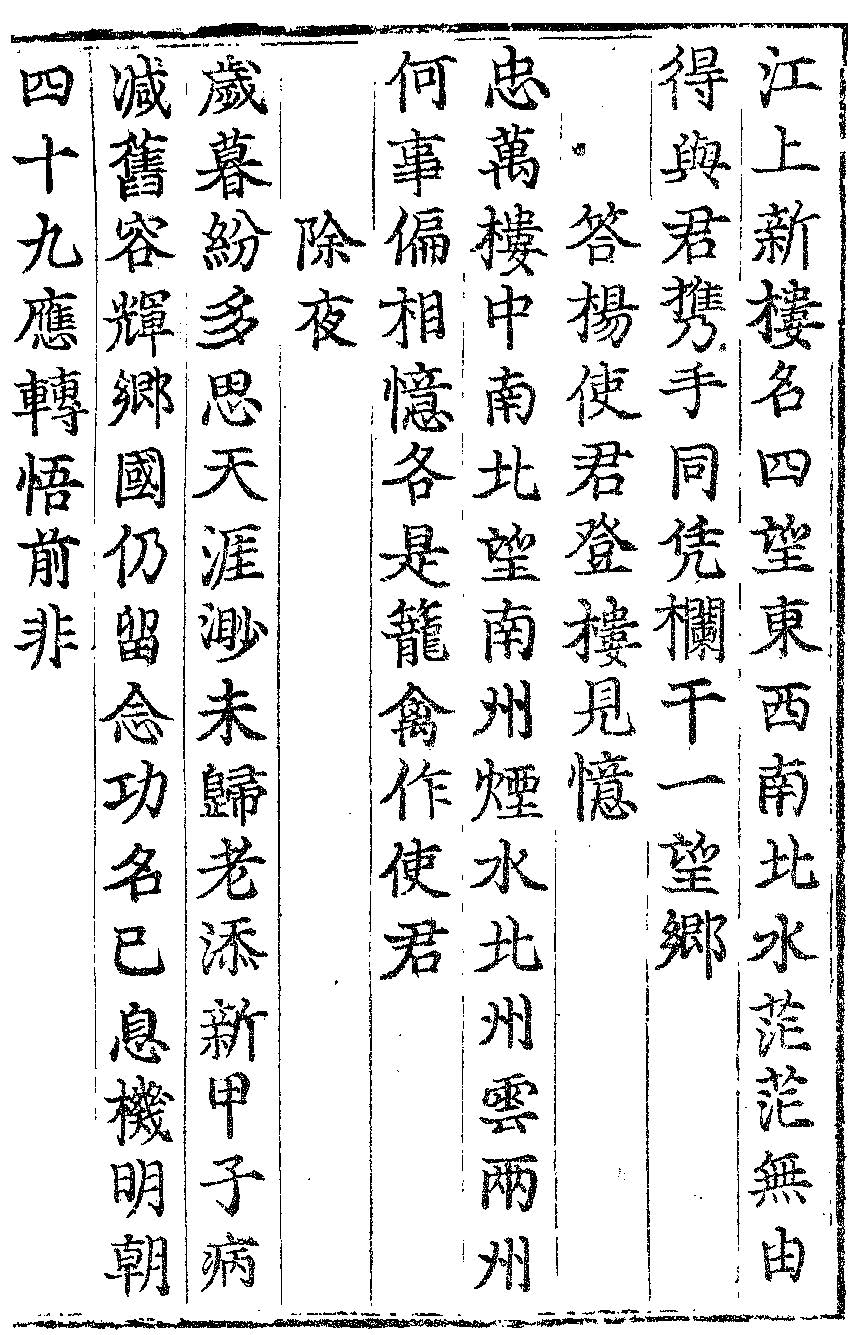 江上新樓名四望東西南北水茫茫無由
得與君携手同凭欄干一望鄉
答楊使君登樓見憶
忠萬樓中南北望南州煙水北州雲兩州
何事偏相憶各是籠禽作使君
除夜
歲暮紛多思天涯渺未歸老添新甲子病
減舊容輝鄉國仍留念功名已息機明朝
四十九應轉悟前非